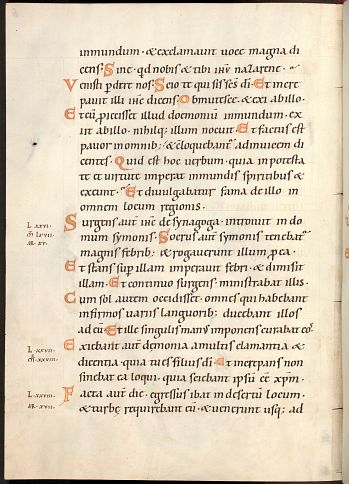 inmundum · & exclamauit uoce magna di
cens · Sine · qd nobis & tibi ihū nazarene ·
Venisti pdere nos · Scio te qui sis sc̄s dī · Et incre
pauit illi ihc dicens · Obmutesce · & exi ab illo ·
Et cū piecisset illud doemoniū inmundum · ex
iit ab illo · nihilq; illum nocuit · Et factus est
pauor in omnib; · & c̄loquebantʳ adinuicem di
centes · Quid est hoc uerbum · quia in potesta
te et uirtute imperat inmundis spiritibus &
exeunt · Et diuulgabatur fama de illo in
omnem locum regionis ·
Surgens autē ihc de synagoga · introiuit in do
L. XXVI.
mum symonis · Socrus autē symonis tenebatʳ
m̄ LXVII.
magnis febrib; · & rogauerunt illum p ea ·
M. XV.
Et stans sup illam imperauit febri · & dimisit
illam · Et continuo surgens ministrabat illis ·
Cum sol autem occidisset · omnes qui habebant
infirmos uariis languorib; · ducebant illos
ad eū · Et ille singulis manꝰ imponens curabat eoſ ·
Exiebant autē demonia a multis clamantia &
L. XXVII.
dicentia · quia tu es filius dī · Et increpans non
m̄. XXVIII.
sinebat ea loqui · quia sciebant ipsū eē xp̄m ·
Facta autē die · egressus ibat in desertū locum ·
L. XXVIII.
& turbę requirebant eū · & uenerunt usq; ad
M. XVII.